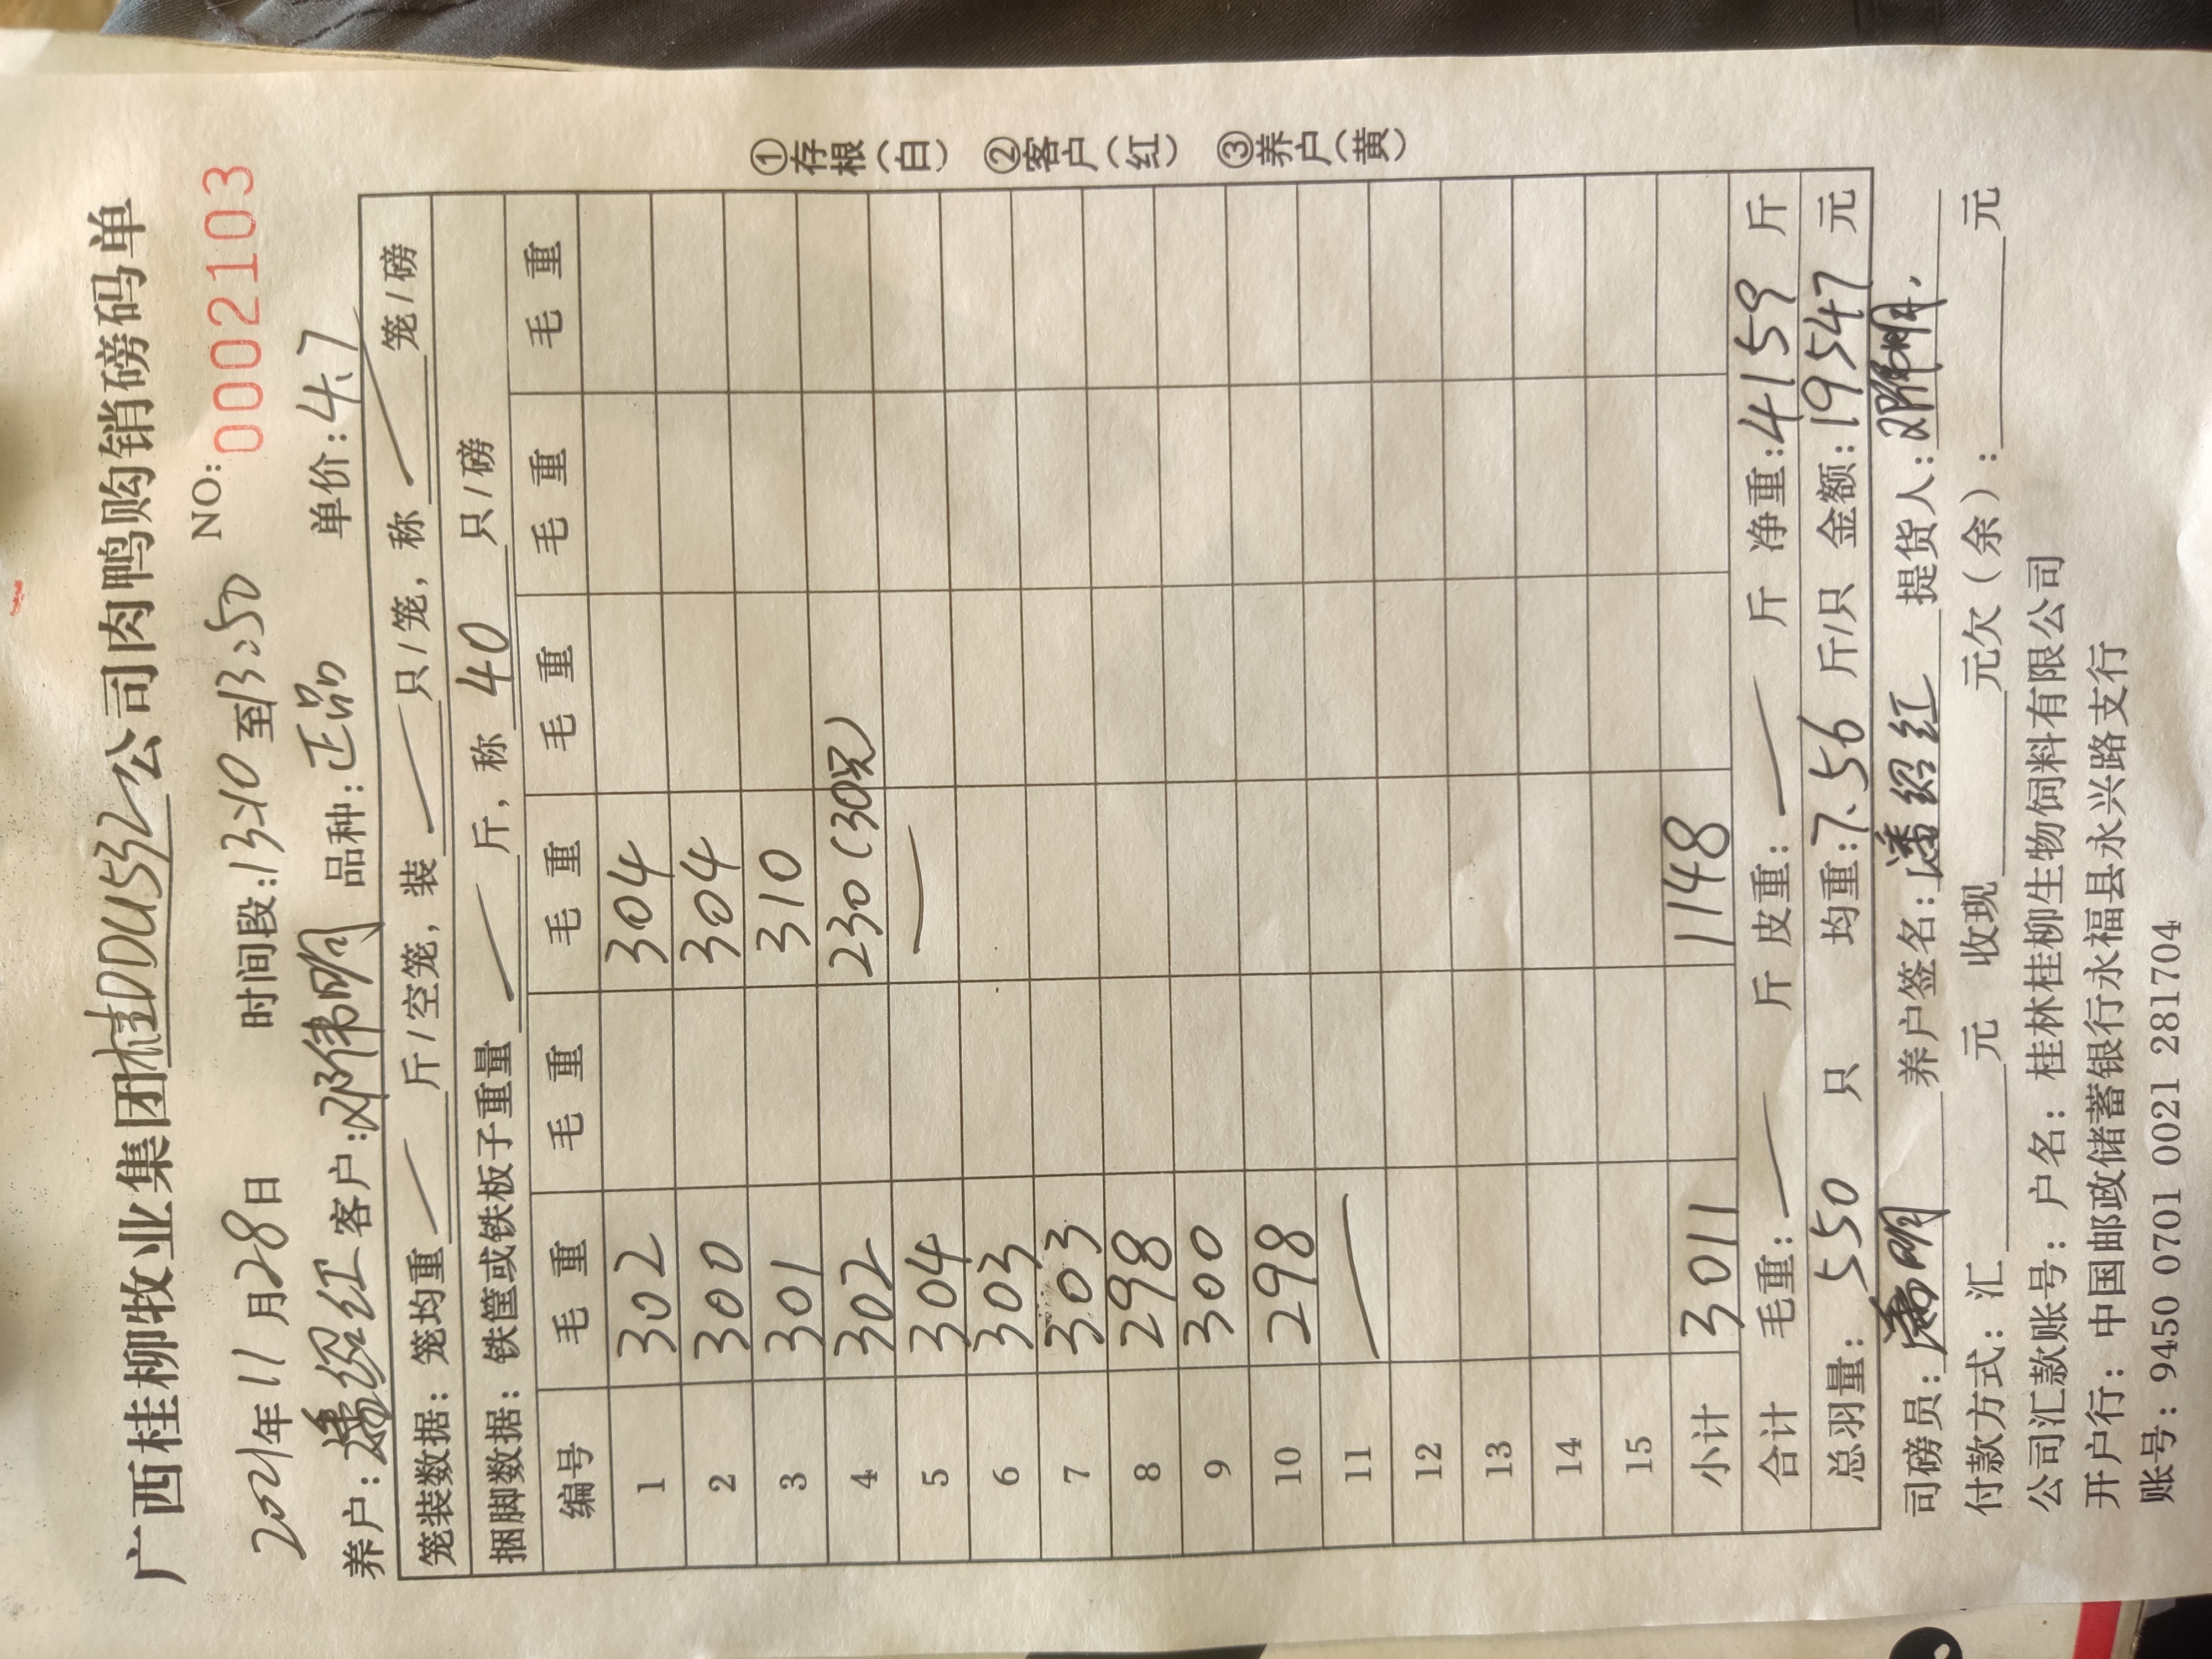 广西桂柳牧业集团公司肉鸭购销磅码单
NO: 0002103
2021年11月28日 时间段:13:10至13:50
养户:潘绍红 客户:邓伟明 品种:正品 单价:4.7
笼装数据: 笼均重 斤/空笼, 装 只/笼, 称 笼/磅
捆脚数据: 铁筐或铁板子重量 斤, 称 40 只/磅
编号 毛重 毛重 毛重 毛重 毛重 毛重
1 302 304
2 300 304
3 301 310
4 302 230(30只)
5 304
6 303
7 303
8 298
9 300
10 298
11
12
13
14
15
小计 3011 1148
合计 毛重: 斤 皮重: 斤 净重:4159 斤
总羽量: 550 只 均重:7.56 斤/只 金额:19547 元
司磅员: 养户签名:潘绍红 提货人:
付款方式: 汇 元 收现 元欠(余): 元
公司汇款账号: 户名: 桂林桂柳生物饲料有限公司
开户行: 中国邮政储蓄银行永福县永兴路支行
账号: 9450 0701 0021 281704
①存根(白) ②客户(红) ③养户(黄)